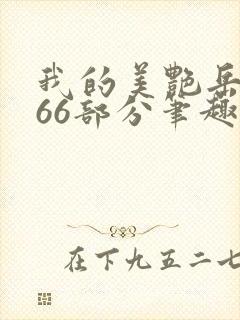 我的美艷岳
66部分笔趣
在下九五二七